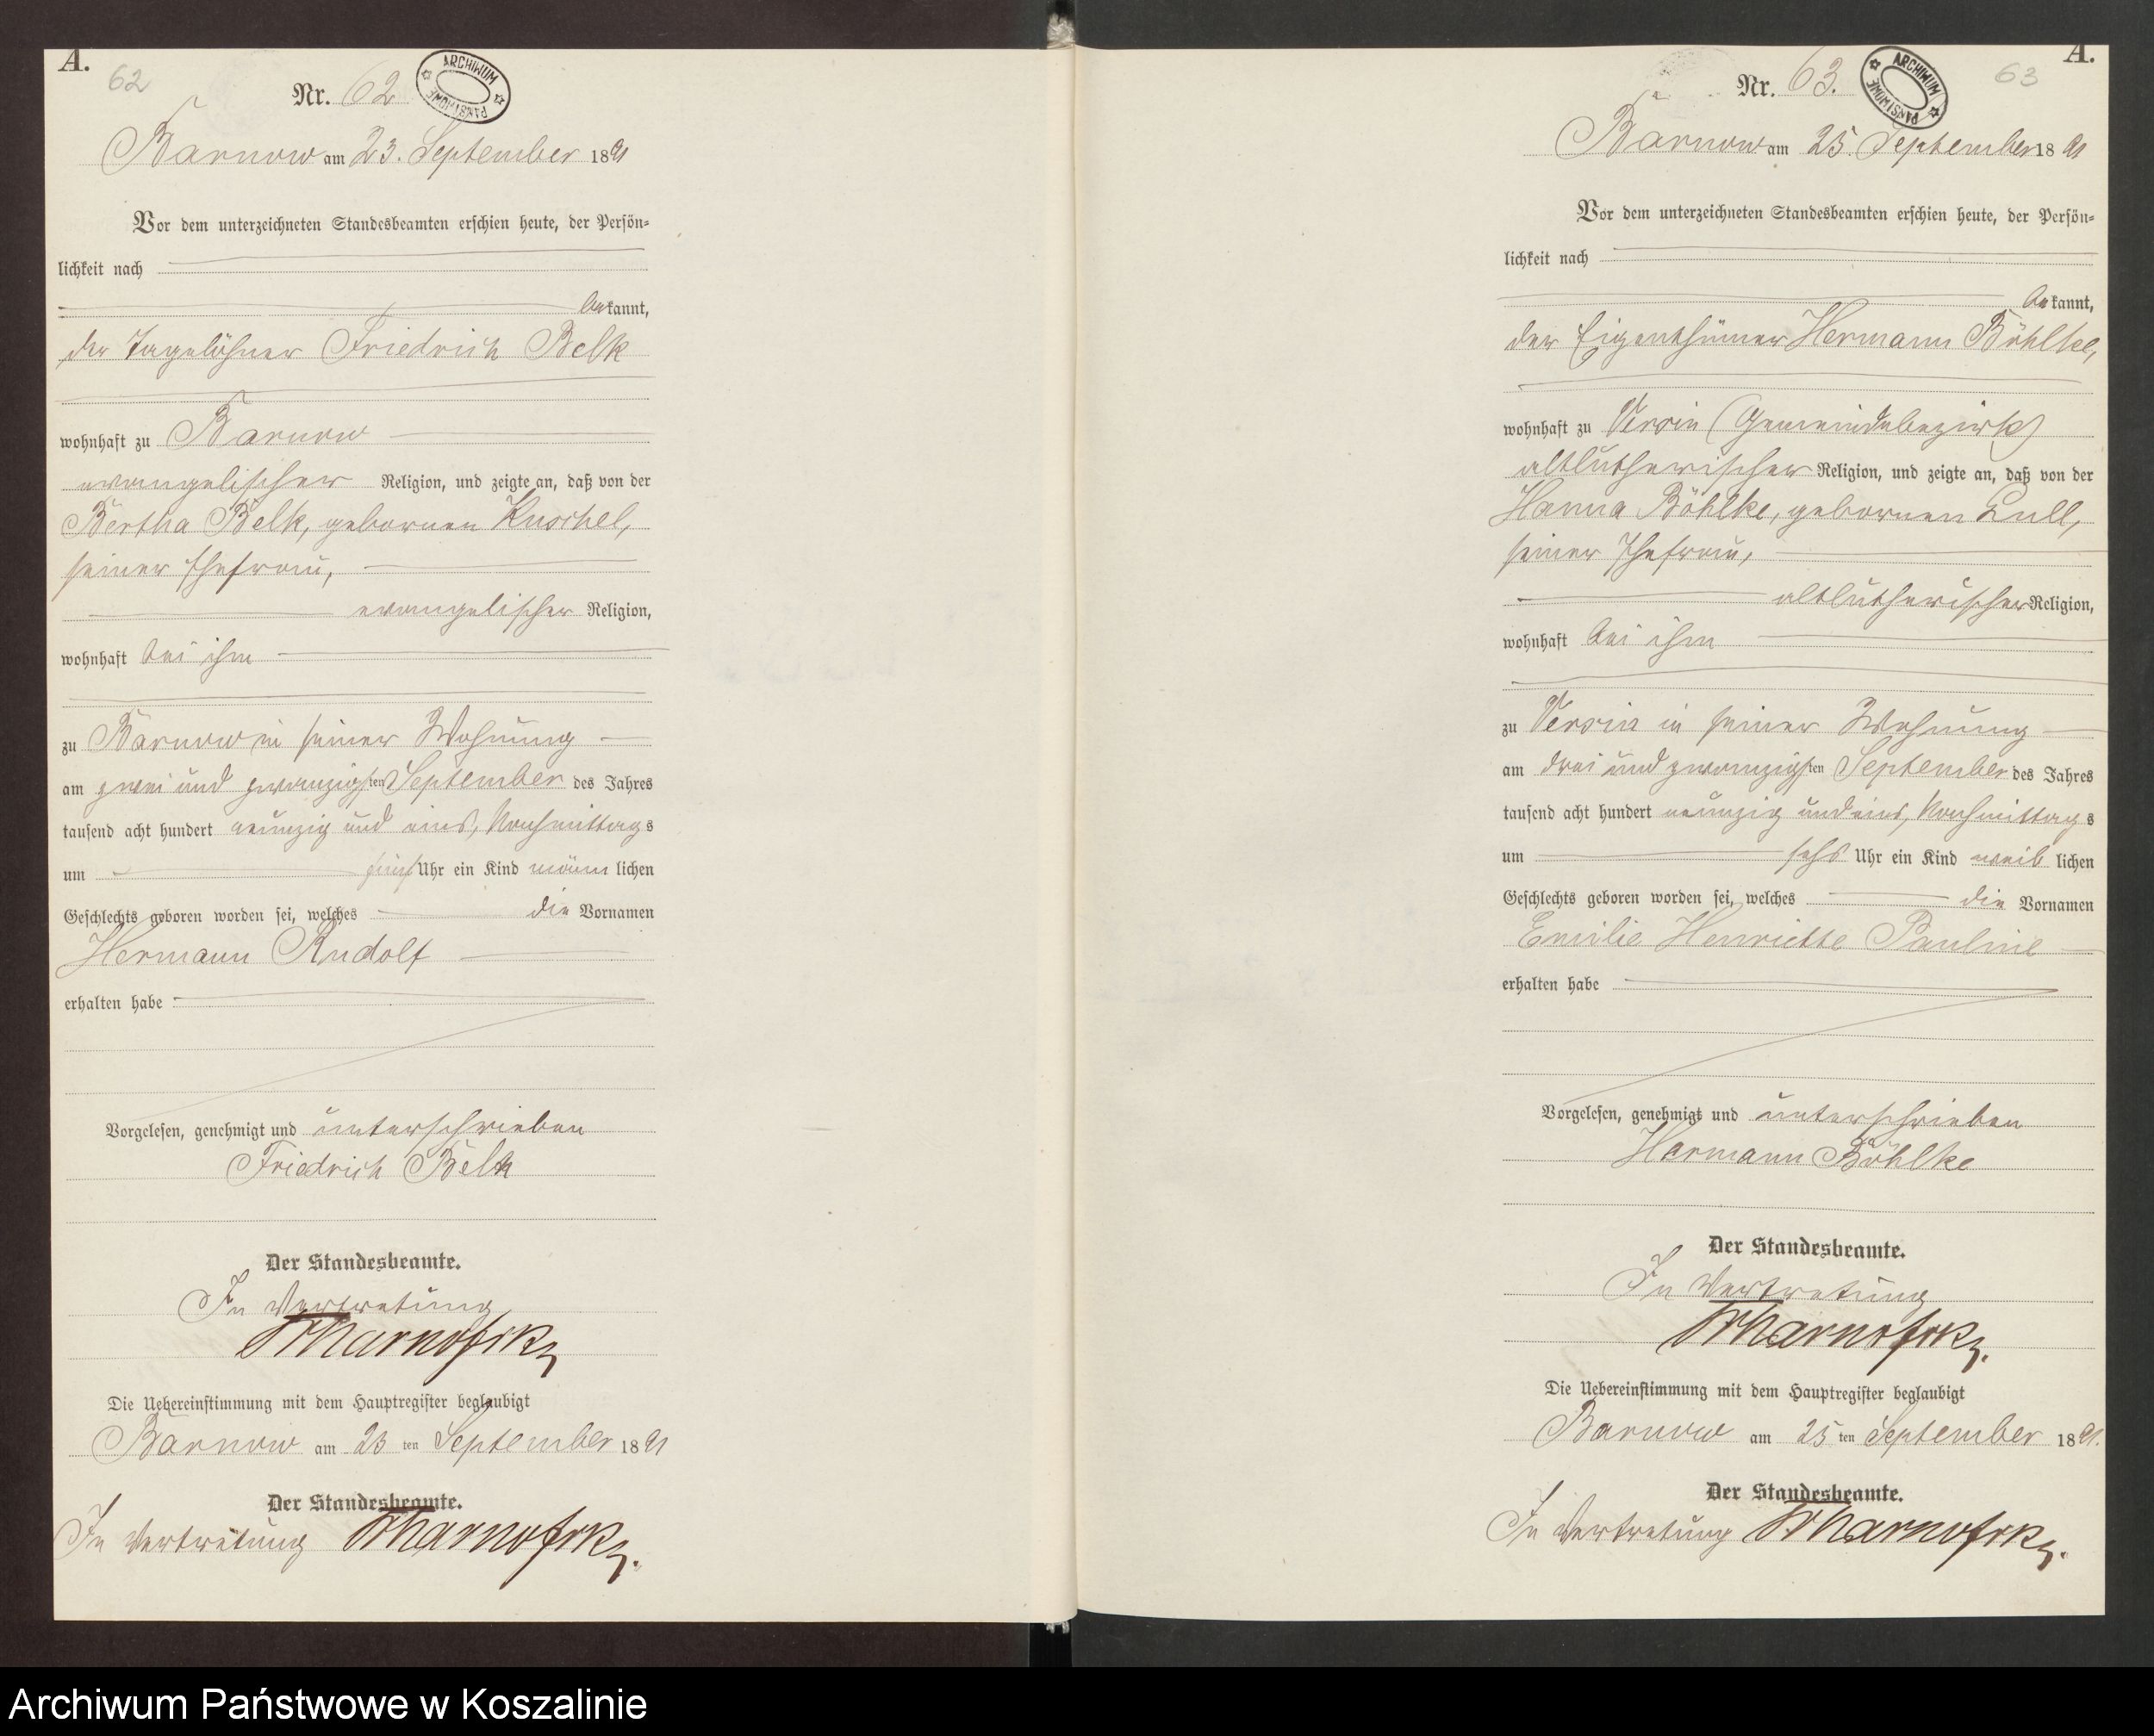 A.
62
Nr. 62
ARCHIWUM PAŃSTWOWE
Barnow am 23. September 1891
Vor dem unterzeichneten Standesbeamten erschien heute, der Persön-
lichkeit nach
bekannt,
der Tagelöhner Friedrich Belk
wohnhaft zu Barnow
evangelischer Religion, und zeigte an, daß von der
Bertha Belk, gebornen Kuschel,
seiner Ehefrau,
evangelischer Religion,
wohnhaft bei ihm
zu Barnow in seiner Wohnung
am zwei und zwanzigsten September des Jahres
tausend acht hundert neunzig und eins, Nachmittags
um fünf Uhr ein Kind männlichen
Geschlechts geboren worden sei, welches die Vornamen
Hermann Rudolf
erhalten habe
Vorgelesen, genehmigt und unterschrieben
Friedrich Belk
Der Standesbeamte.
In Vertretung
Die Uebereinstimmung mit dem Hauptregister beglaubigt
Barnow am 23ten September 1891
Der Standesbeamte.
In Vertretung
A.
63
Nr. 63.
ARCHIWUM PAŃSTWOWE
Barnow am 25. September 1891
Vor dem unterzeichneten Standesbeamten erschien heute, der Persön-
lichkeit nach
bekannt,
der Eigenthümer Hermann Böhlke,
wohnhaft zu Versin (Gemeindebezirk)
altlutherischer Religion, und zeigte an, daß von der
Hanna Böhlke, gebornen Lull,
seiner Ehefrau,
altlutherischer Religion,
wohnhaft bei ihm
zu Versin in seiner Wohnung
am drei und zwanzigsten September des Jahres
tausend acht hundert neunzig und eins, Nachmittags
um sechs Uhr ein Kind weiblichen
Geschlechts geboren worden sei, welches die Vornamen
Emilie Henriette Pauline
erhalten habe
Vorgelesen, genehmigt und unterschrieben
Hermann Böhlke
Der Standesbeamte.
In Vertretung
Die Uebereinstimmung mit dem Hauptregister beglaubigt
Barnow am 25ten September 1891.
Der Standesbeamte.
In Vertretung
Archiwum Państwowe w Koszalinie